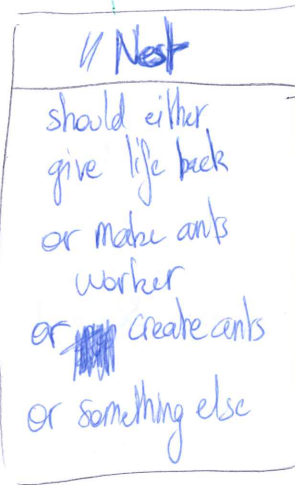 // Nest
should either
give life back
or make ants
worker
or create ants
or something else